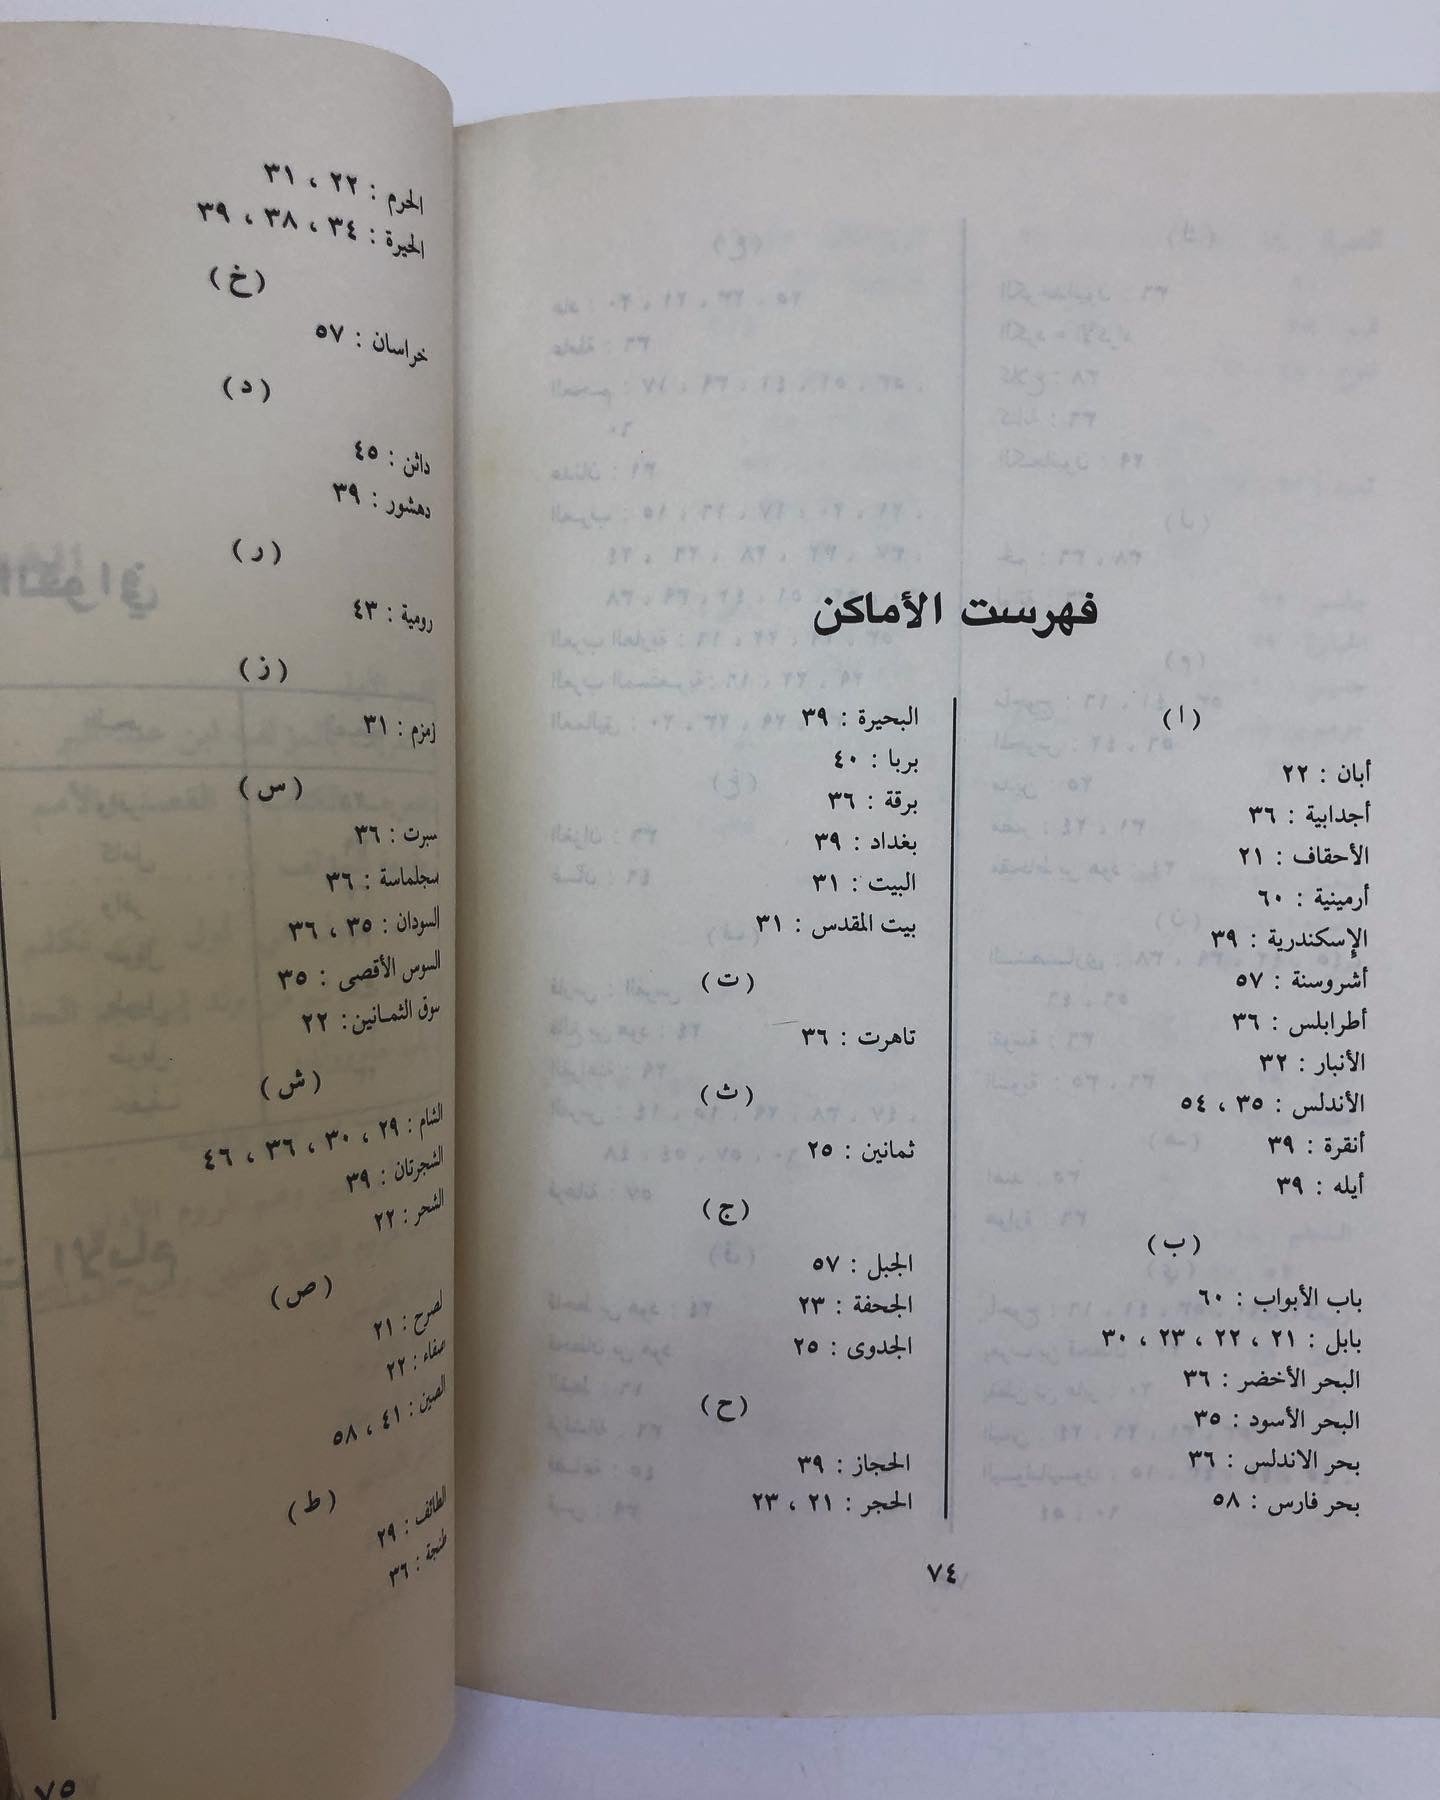 فهرست الأماكن
( ا )
أبان : ٢٢
أجدابية : ٣٦
الأحقاف : ٢١
أرمينية : ٦٠
الإسكندرية : ٣٩
أشروسنة : ٥٧
أطرابلس : ٣٦
الأنبار : ٣٢
الأندلس : ٣٥ ، ٥٤
أنقرة : ٣٩
أيله : ٣٩
( ب )
باب الأبواب : ٦٠
بابل : ٢١ ، ٢٢ ، ٢٣ ، ٣٠
البحر الأخضر : ٣٦
البحر الأسود : ٣٥
بحر الاندلس : ٣٦
بحر فارس : ٥٨
البحيرة : ٣٩
بربا : ٤٠
برقة : ٣٦
بغداد : ٣٩
البيت : ٣١
بيت المقدس : ٣١
( ت )
تاهرت : ٣٦
( ث )
ثمانين : ٢٥
( ج )
الجبل : ٥٧
الجحفة : ٢٣
الجدوى : ٢٥
( ح )
الحجاز : ٣٩
الحجر : ٢١ ، ٢٣
٧٤
الحرم : ٢٢ ، ٣١
الحيرة : ٣٤ ، ٣٨ ، ٣٩
( خ )
خراسان : ٥٧
( د )
داثن : ٤٥
دهشور : ٣٩
( ر )
رومية : ٤٣
( ز )
زمزم : ٣١
( س )
سبرت : ٣٦
سجلماسة : ٣٦
السودان : ٣٥ ، ٣٦
السوس الأقصى : ٣٥
سوق الثمانين : ٢٢
( ش )
الشام : ٢٩ ، ٣٠ ، ٣٦ ، ٤٦
الشجرتان : ٣٩
الشحر : ٢٢
( ص )
لصرح : ٢١
صفاء : ٢٢
الصين : ٤١ ، ٥٨
( ط )
الطائف : ٢٩
طنجة : ٣٦
٧٥